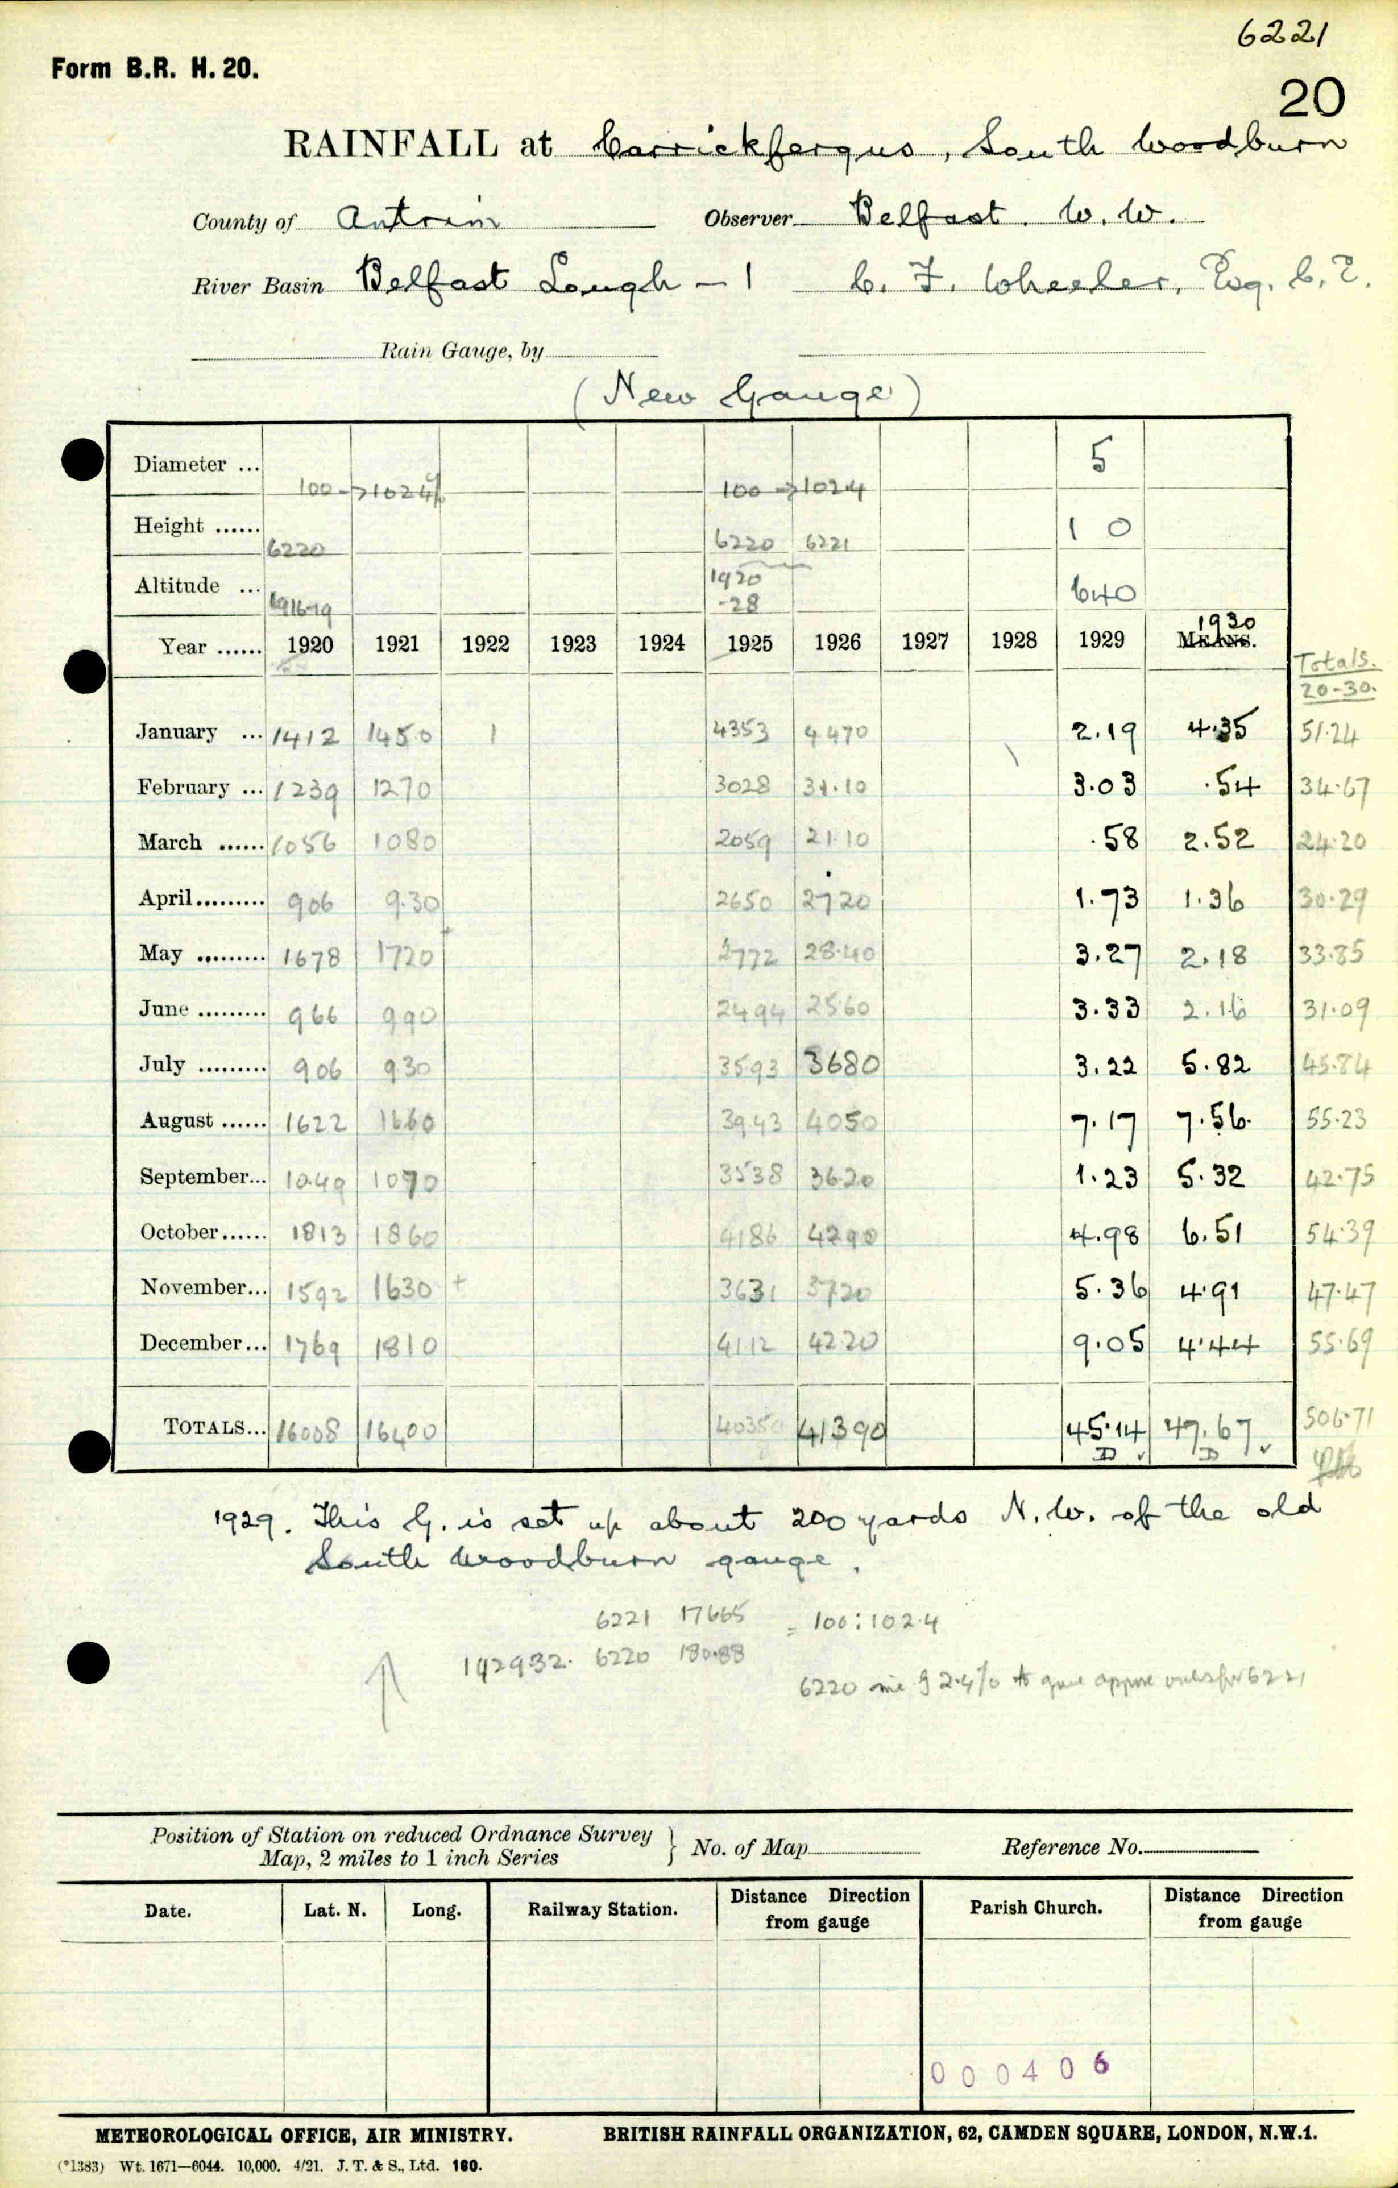 6221
Form B.R. H. 20.
20
RAINFALL at Carrickfergus, South Woodburn
County of Antrim Observer Belfast. W. W.
River Basin Belfast Lough - 1 C. F. Wheeler, Esq. C. E.
Rain Gauge, by
(New Gauge)
Diameter ... 5
100 → 102.4 100 → 102.4
Height ...... 1 0
6220 6220 6221
Altitude ... 640
1916-19 1920 -28
1930
Year ...... 1920 1921 1922 1923 1924 1925 1926 1927 1928 1929 MEANS. Totals. 20-30.
January ... 1412 1450 4353 4470 2.19 4.35 51.24
February ... 1239 1270 3028 31.10 3.03 .54 34.67
March ...... 1056 1080 2059 21.10 .58 2.52 24.20
April ......... 906 9.30 2650 2720 1.73 1.36 30.29
May ......... 1678 1720 2772 28.40 3.27 2.18 33.85
June ......... 966 990 2494 2560 3.33 2.16 31.09
July ......... 906 930 3593 3680 3.22 5.82 45.84
August ...... 1622 1660 3943 4050 7.17 7.56 55.23
September... 1049 1070 3538 3620 1.23 5.32 42.75
October...... 1813 1860 4186 4290 4.98 6.51 54.39
November... 1592 1630 3631 3720 5.36 4.91 47.47
December... 1769 1810 4112 4220 9.05 4.44 55.69
TOTALS... 16008 16400 40350 41390 45.14 47.67 506.71
D D
1929. This G. is set up about 200 yards N. W. of the old
South Woodburn gauge.
6221 17665 = 100:102.4
1929-32. 6220 180.88
6220 2.4% to give approx values for 6221
Position of Station on reduced Ordnance Survey
Map, 2 miles to 1 inch Series } No. of Map Reference No.
Date. Lat. N. Long. Railway Station. Distance Direction from gauge Parish Church. Distance Direction from gauge
000406
METEOROLOGICAL OFFICE, AIR MINISTRY. BRITISH RAINFALL ORGANIZATION, 62, CAMDEN SQUARE, LONDON, N.W.1.
(*1383) Wt. 1671—6044. 10,000. 4/21. J. T. & S., Ltd. 160.